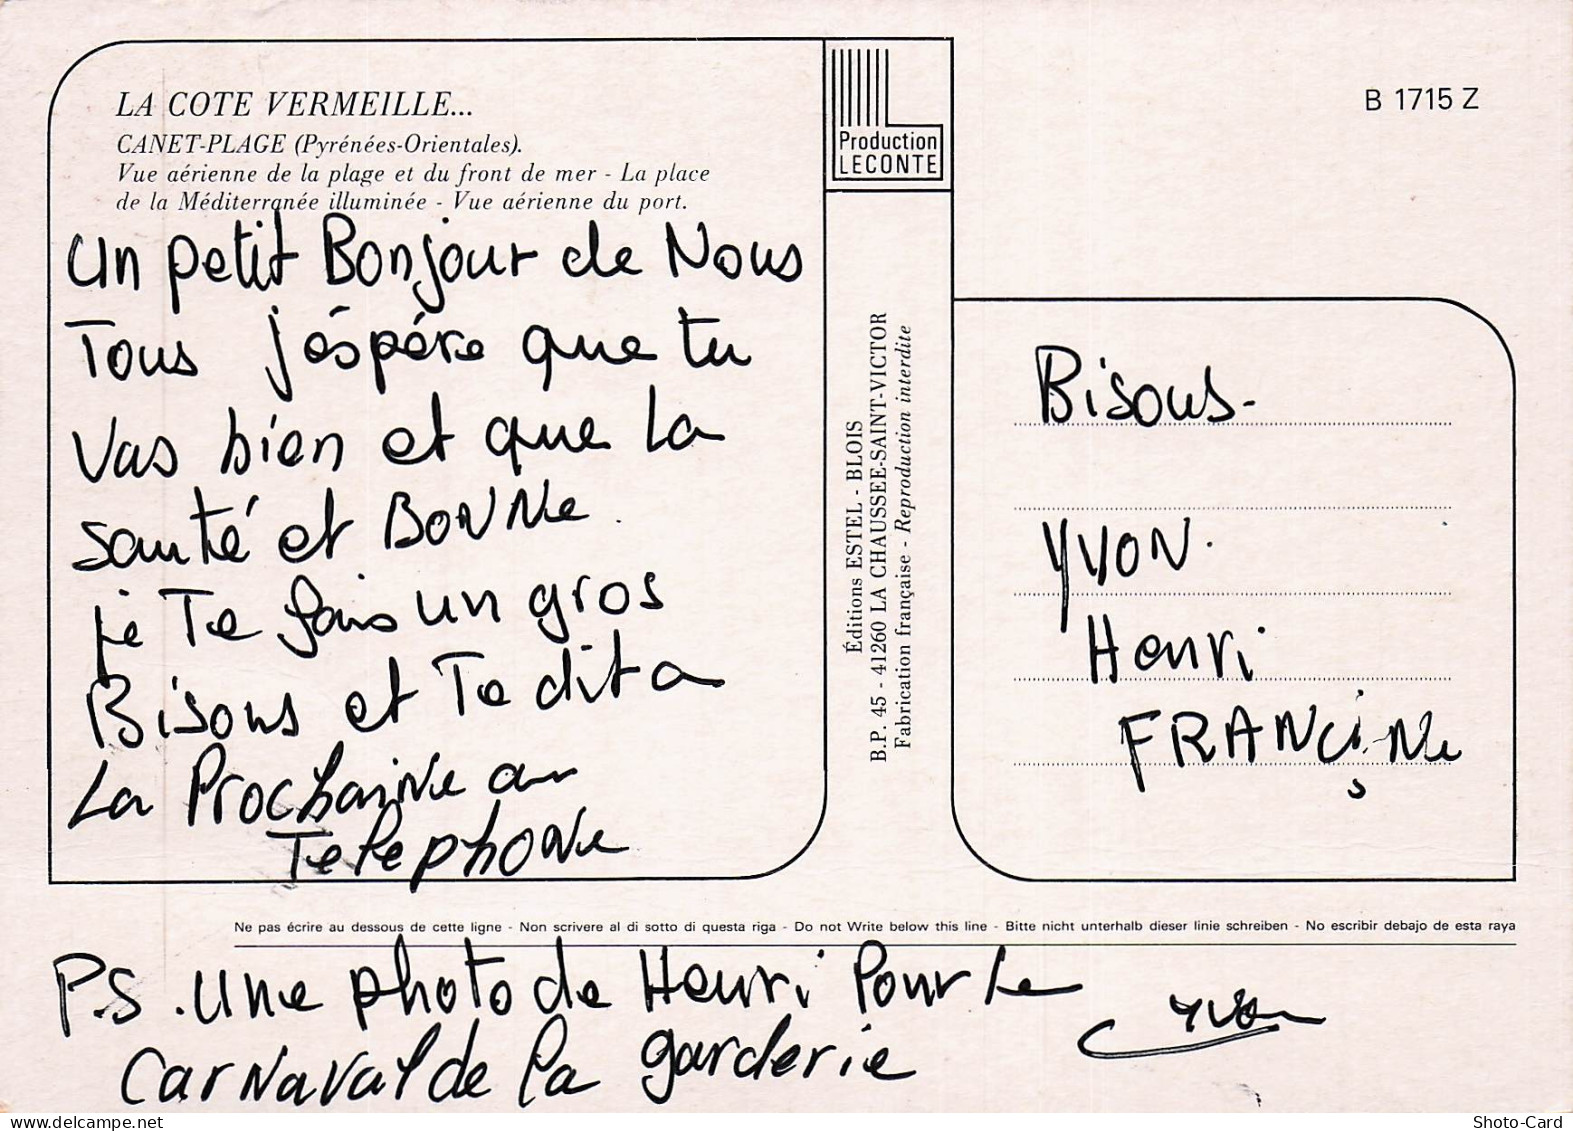 LA COTE VERMEILLE...
CANET-PLAGE (Pyrénées-Orientales).
Vue aérienne de la plage et du front de mer - La place
de la Méditerranée illuminée - Vue aérienne du port.
un petit Bonjour de Nous
Tous j'éspére que tu
vas bien et que la
santé et BONNe
je Te fais un gros
Bisous et Te dit a
La Prochaine au
Telephone
Production
LECONTE
B 1715 Z
Éditions ESTEL - BLOIS
B.P. 45 - 41260 LA CHAUSSEE-SAINT-VICTOR
Fabrication française - Reproduction interdite
Bisous.
YVON.
Henri
FRANÇiNe
Ne pas écrire au dessous de cette ligne - Non scrivere al di sotto di questa riga - Do not Write below this line - Bitte nicht unterhalb dieser linie schreiben - No escribir debajo de esta raya
P.S. une photo de Henri Pour le
Carnaval de la garderie
Yvon
delcampe.net
Shoto-Card